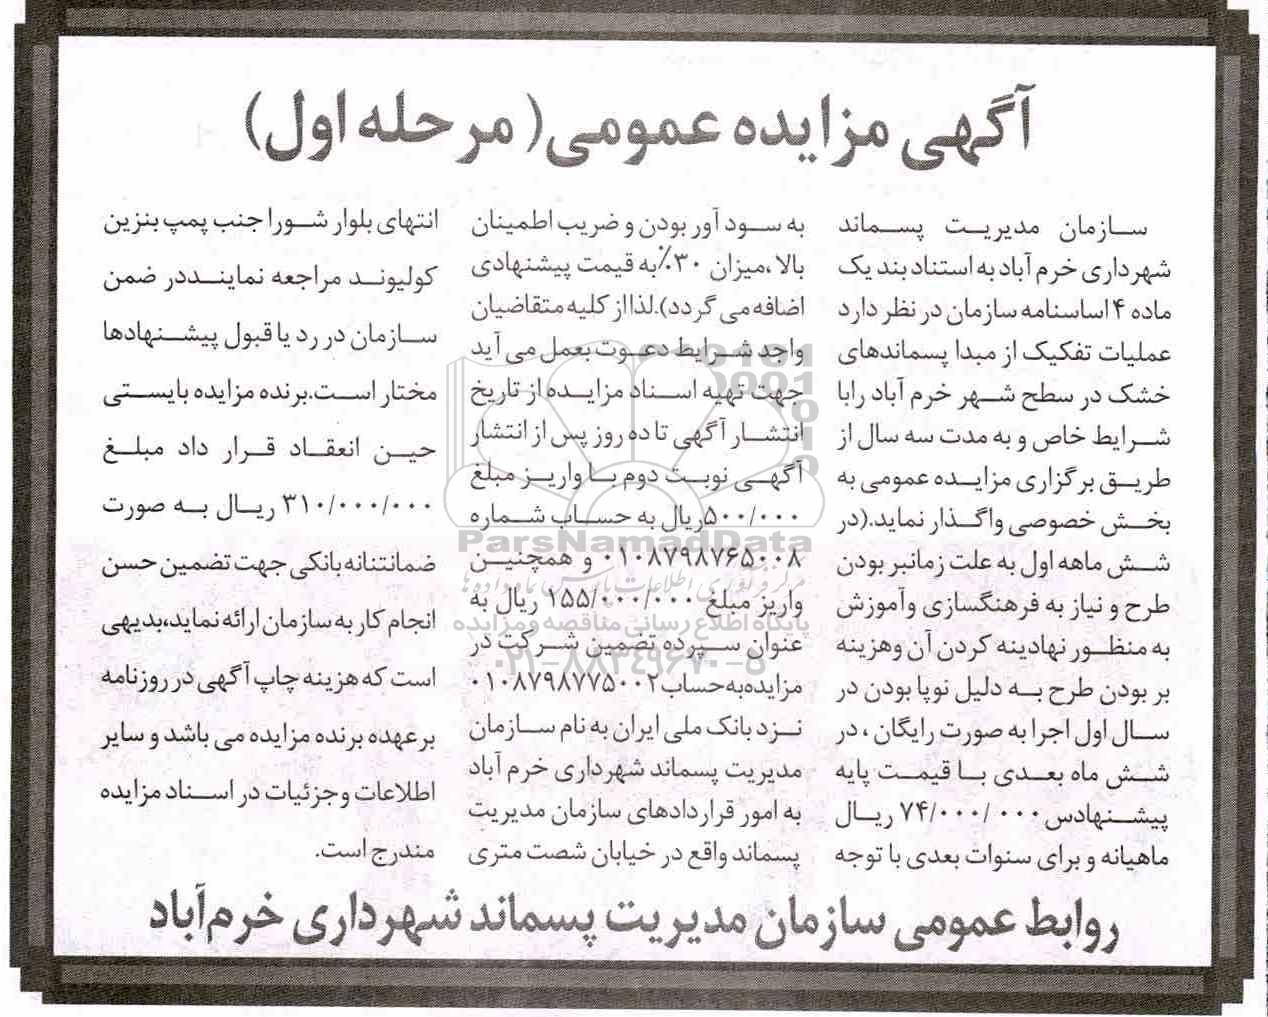 آگهی مزایده عمومی( مرحله اول)
سازمان مدیریت پسماند
شهرداری خرم آباد به استناد بند یک
ماده ۴ اساسنامه سازمان در نظر دارد
عملیات تفکیک از مبدا پسماندهای
خشک در سطح شهر خرم آباد رابا
شرایط خاص و به مدت سه سال از
طریق برگزاری مزایده عمومی به
بخش خصوصی واگذار نماید.(در
شش ماهه اول به علت زمانبر بودن
طرح و نیاز به فرهنگسازی وآموزش
به منظور نهادینه کردن آن وهزینه
بر بودن طرح به دلیل نوپا بودن در
سال اول اجرا به صورت رایگان ، در
شش ماه بعدی با قیمت پایه
پیشنهادس ۷۴/۰۰۰/۰۰۰ ریال
ماهیانه و برای سنوات بعدی با توجه
به سود آور بودن و ضریب اطمینان
بالا ،میزان ۳۰٪به قیمت پیشنهادی
اضافه می گردد).لذااز کلیه متقاضیان
واجد شرایط دعوت بعمل می آید
جهت تهیه اسناد مزایده از تاریخ
انتشار آگهی تا ده روز پس از انتشار
آگهی نوبت دوم با واریز مبلغ
۵۰۰/۰۰۰ریال به حساب شماره
۰۱۰۸۷۹۸۷۶۵۰۰۸ و همچنین
واریز مبلغ ۱۵۵/۰۰۰/۰۰۰ ریال به
عنوان سپرده تضمین شرکت در
مزایده‌به‌حساب۰۱۰۸۷۹۸۷۷۵۰۰۲
نزد بانک ملی ایران به نام سازمان
مدیریت پسماند شهرداری خرم آباد
به امور قراردادهای سازمان مدیریت
پسماند واقع در خیابان شصت متری
انتهای بلوار شورا جنب پمپ بنزین
کولیوند مراجعه نماینددر ضمن
سازمان در رد یا قبول پیشنهادها
مختار است.برنده مزایده بایستی
حین انعقاد قرار داد مبلغ
۳۱۰/۰۰۰/۰۰۰ ریال به صورت
ضمانتنانه بانکی جهت تضمین حسن
انجام کار به سازمان ارائه نماید،بدیهی
است که هزینه چاپ آگهی در روزنامه
برعهده برنده مزایده می باشد و سایر
اطلاعات وجزئیات در اسناد مزایده
مندرج است.
روابط عمومی سازمان مدیریت پسماند شهرداری خرم‌آباد
ParsNamadData
پایگاه اطلاع رسانی مناقصه و مزایده
۰۲۱-۸۸۳۴۹۶۷۰-۵